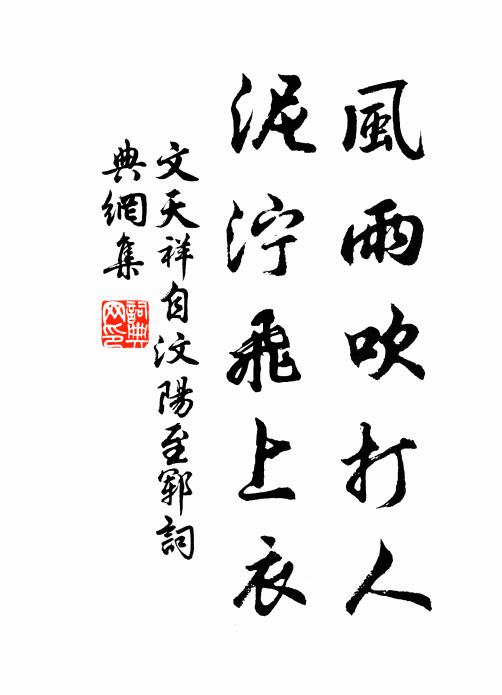 風雨吹打人
泥濘飛上衣
文天祥自汶陽至鄆詞
典網集
詞典
网印